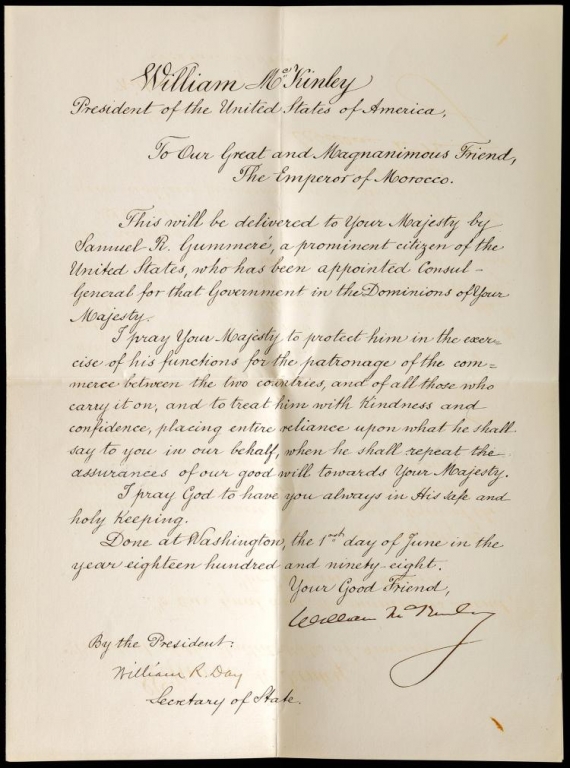 William McKinley
President of the United States of America,
To Our Great and Magnanimous Friend,
The Emperor of Morocco.
This will be delivered to Your Majesty by
Samuel R. Gummeré, a prominent citizen of the
United States, who has been appointed Consul-
General for that Government in the Dominions of Your
Majesty.
I pray Your Majesty to protect him in the exer=
cise of his functions for the patronage of the com=
merce between the two countries, and of all those who
carry it on, and to treat him with kindness and
confidence, placing entire reliance upon what he shall
say to you in our behalf, when he shall repeat the
assurances of our good will towards Your Majesty.
I pray God to have you always in His safe and
holy keeping.
Done at Washington, the 1st day of June in the
year eighteen hundred and ninety-eight.
Your Good Friend,
William McKinley
By the President:
William R. Day
Secretary of State.